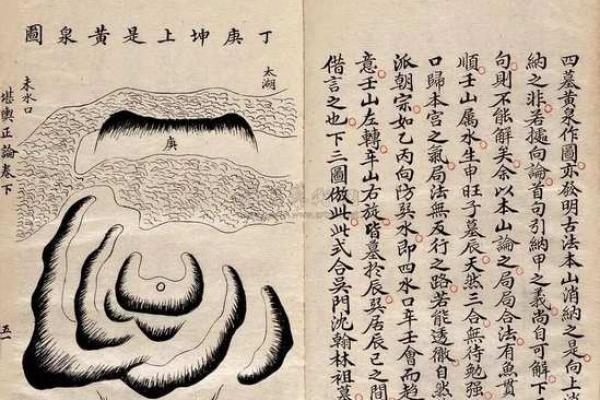 四墓黃泉作圖亦發明古法本山消納之是向上消
納之非若據向論首句引納甲之義尚自可解下
句則不能解矣余以本山論之局局合法有魚貫
順壬山屬水生申旺子墓辰天然三合無待勉強
口歸本宮之氣局法無反行之路若能透徹自然
派朝宗如乙丙向防巽水即四水口辛壬會而趋
意壬山左轉辛山右旋皆墓於辰巽居辰巳之間
借言之也下三圖倣此此式合吳門沈翰林祖墓
丁庚坤上是黃泉圖
太湖
庚
未水口
堪輿正論卷下
五一